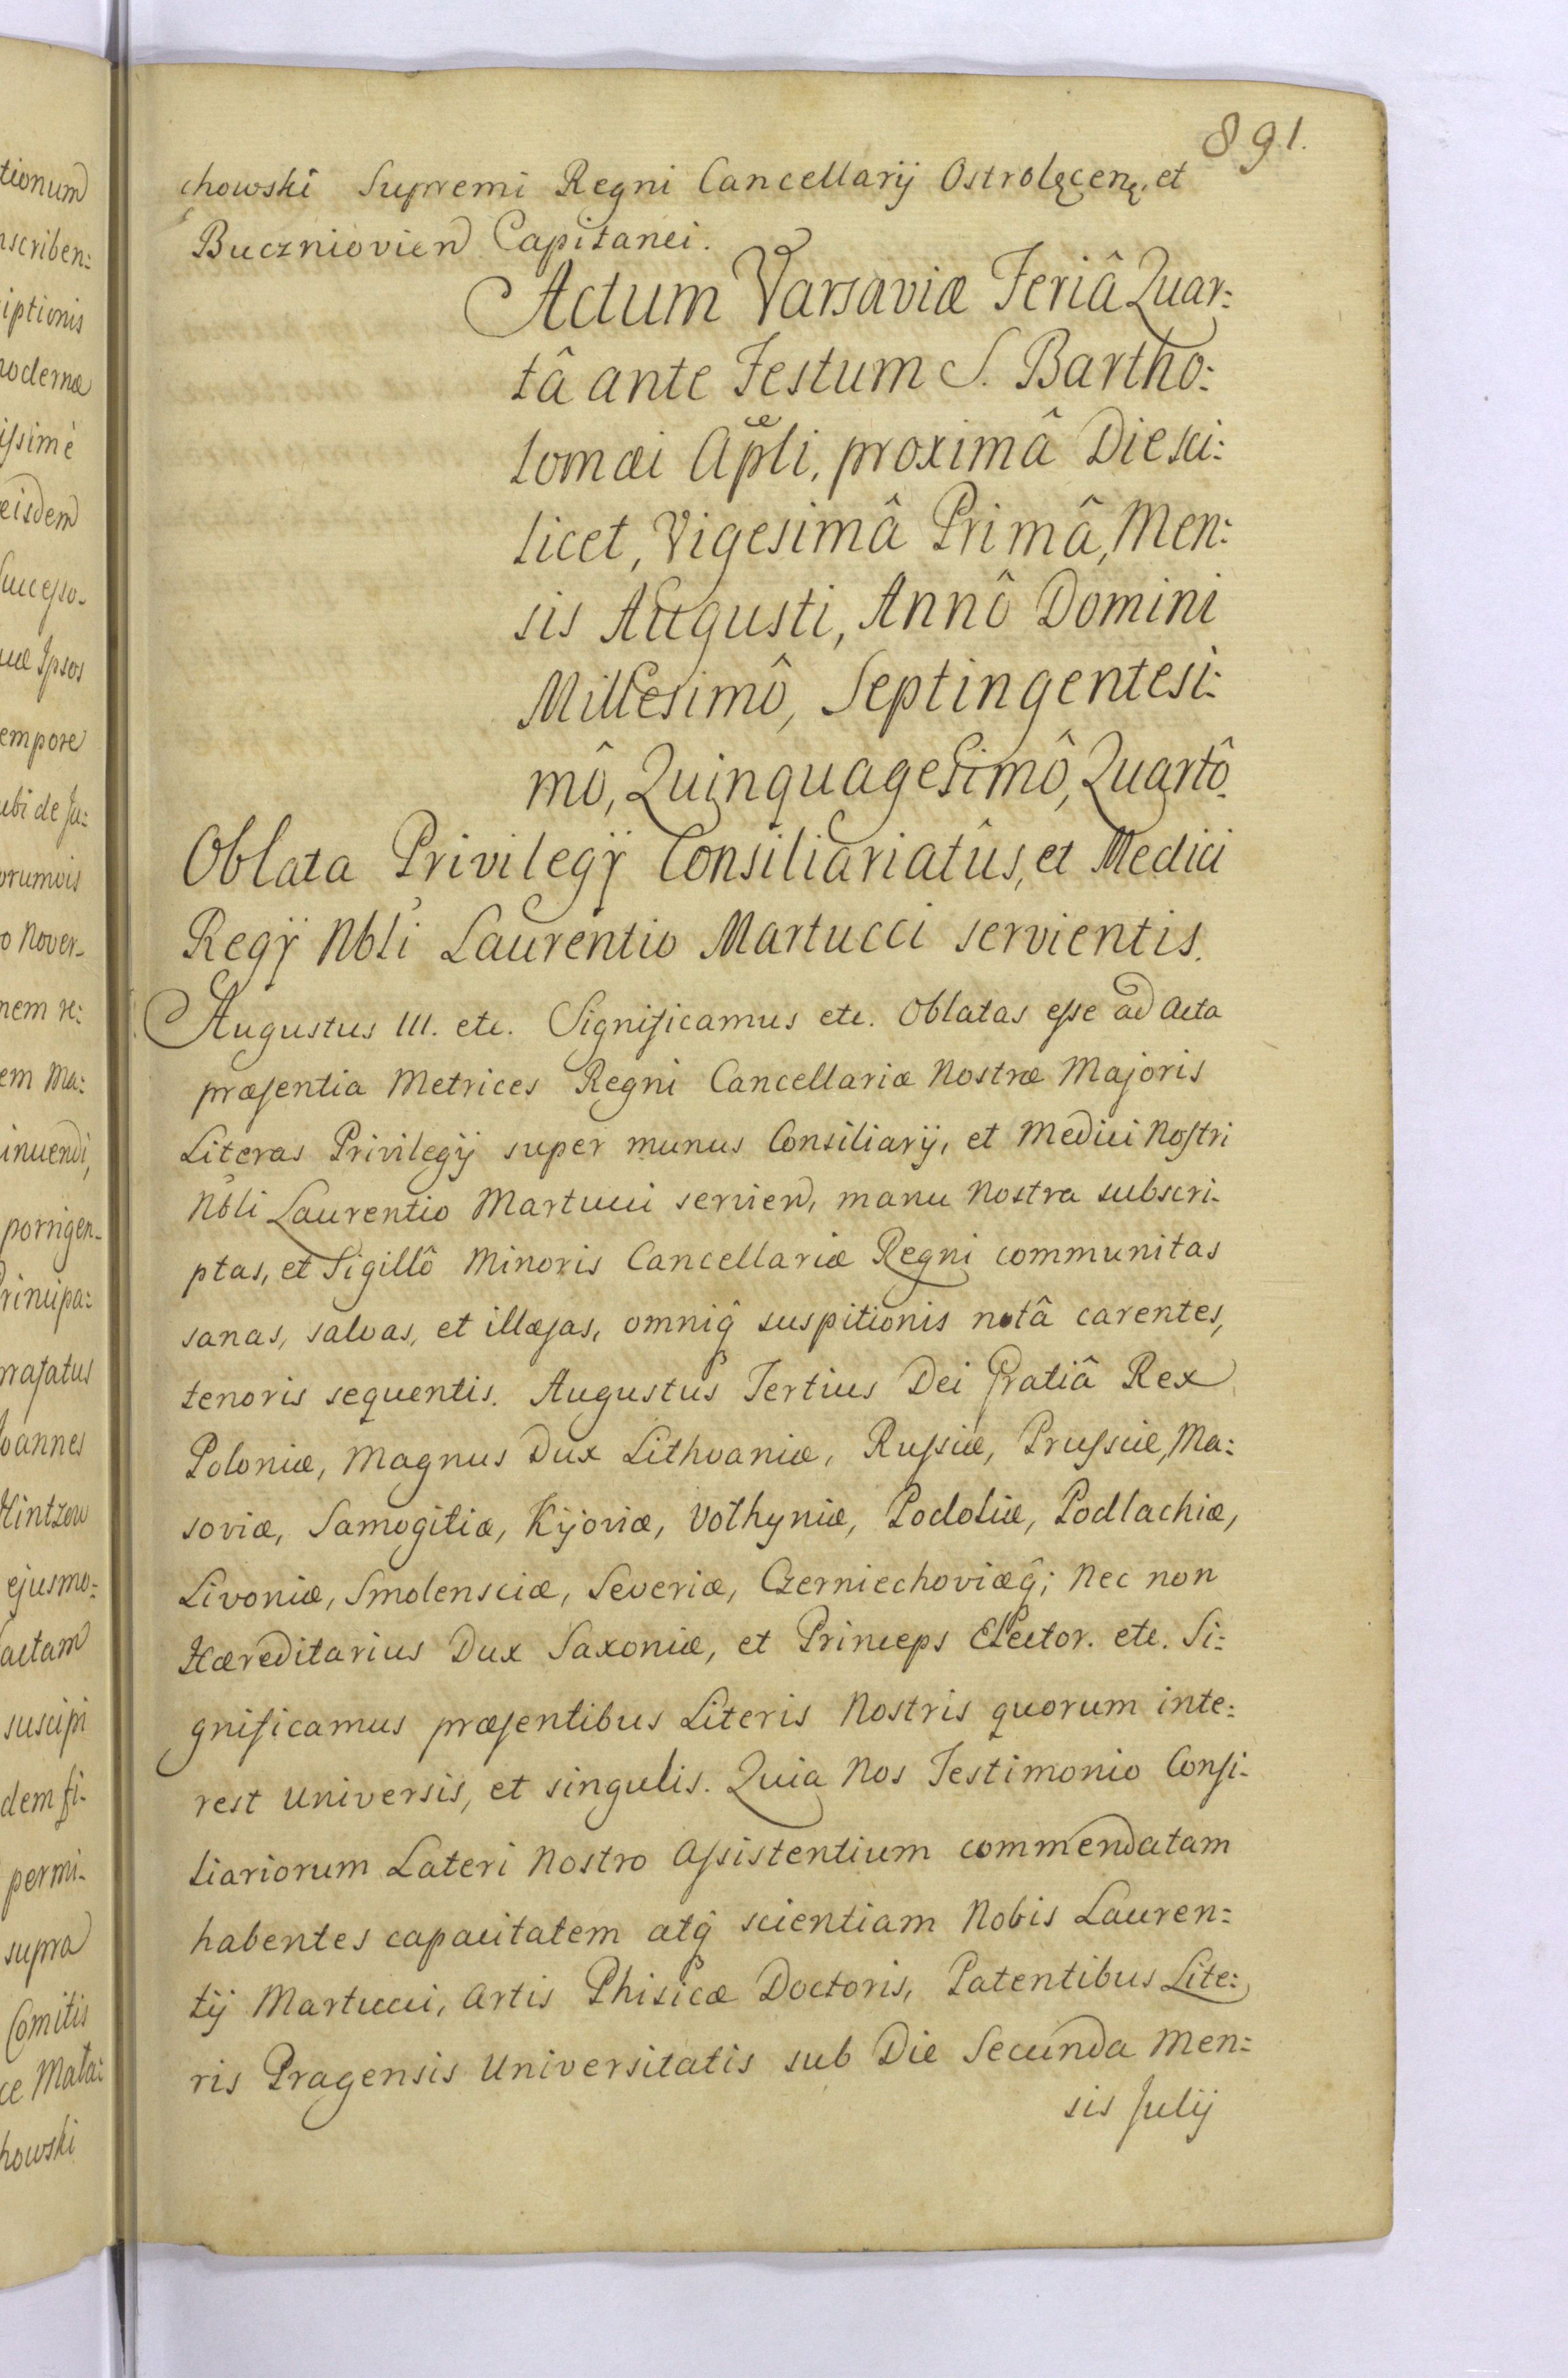 891.
chowski Supremi Regni Cancellarij Ostrolęcenę, et
Buczniovien Capitanei.
Actum Varsaviæ Feriâ Quar:
tâ ante Festum S. Bartho:
lomæi Apli, proximâ Die sci:
licet, Vigesimâ Primâ, Men:
sis Augusti, Annô Domini
Millesimô, Septingentesi:
mô, Quinquagesimô, Quartô.
Oblata Privilegij Consiliariatûs, et Medici
Regij Nbli Laurentio Martucci servientis.
Augustus III. etc. Significamus etc. Oblatas esse ad Acta
præsentia Metrices Regni Cancellariæ Nostræ Majoris
Literas Privilegij super munus Consiliarij, et Medici Nostri
Nbli Laurentio Martucci servien, manu Nostra subscri-
ptas, et Sigillô Minoris Cancellariæ Regni communitas
sanas, salvas, et illæsas, omniq̂ suspitionis notâ carentes,
tenoris sequentis. Augustus Tertius Dei Gratiâ Rex
Poloniæ, Magnus Dux Lithvaniæ, Russiæ, Prussiæ, Ma:
soviæ, Samogitiæ, Kijoviæ, Volhyniæ, Podoliæ, Podlachiæ,
Livoniæ, Smolensciæ, Severiæ, Czerniechoviæq̂; Nec non
Hæreditarius Dux Saxoniæ, et Princeps Elector. etc. Si:
gnificamus præsentibus Literis Nostris quorum inte:
rest Universis, et singulis. Quia Nos Testimonio Consi-
liariorum Lateri Nostro Assistentium commendatam
habentes capacitatem atq̂ scientiam Nobis Lauren:
tij Martucci, Artis Phisicæ Doctoris, Patentibus Lite:
ris Pragensis Universitatis sub Die Secunda Men:
sis Julij